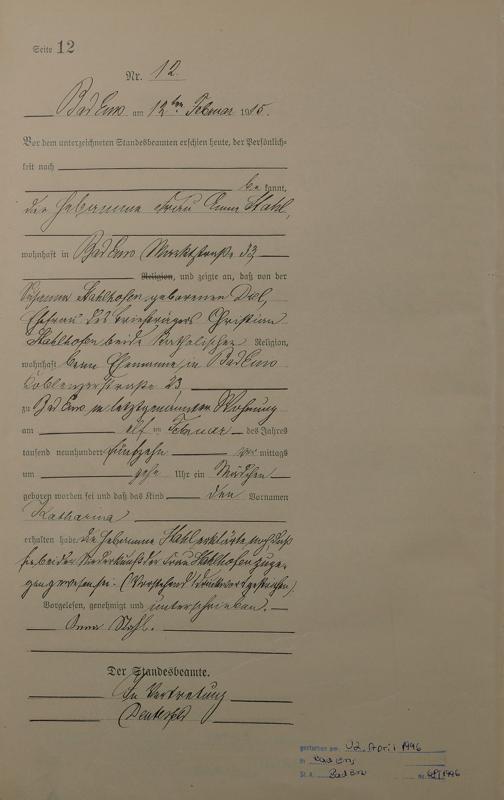 Seite 12
Nr. 12.
Bad Ems am 12ten Februar 1915.
Vor dem unterzeichneten Standesbeamten erschien heute, der Persönlich-
keit nach
be kannt,
die Hebamme Frau Anna Stahl,
wohnhaft in Bad Ems Marktstraße 33
Religion, und zeigte an, daß von der
Susanna Stahlhofen geborenen Diel,
Ehefrau des Briefträgers Christian
Stahlhofen beide katholischer Religion,
wohnhaft beim Ehemanne, in Bad Ems
Koblenzerstraße 23
zu Bad Ems, in letztgenannter Wohnung
am elf ten Februar des Jahres
tausend neunhundert fünfzehn vor mittags
um zehn Uhr ein Mädchen
geboren worden sei und daß das Kind den Vornamen
Katharina
erhalten habe. Die Hebamme Stahl erklärte noch, daß
sie bei der Niederkunft der Frau Stahlhofen zuge-
gen gewesen sei. (Vorstehend 1 Druckwort gestrichen).
Vorgelesen, genehmigt und unterschrieben.
Anna Stahl.
Der Standesbeamte.
In Vertretung
gestorben am 02. April 1996
in Bad Ems
St. A. Bad Ems nr.